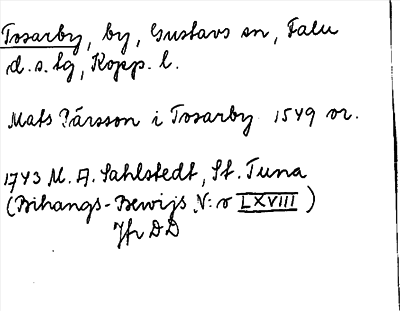 Tosarby, by, Gustavs sn, Falu
d.s. lg, Kopp. l.
Mats Pärsson i Tosarby 1549 or.
1743 M. A. Sahlstedt, St. Tuna
(Bihangs-Bewijs N:o LXVIII)
Jfr DD